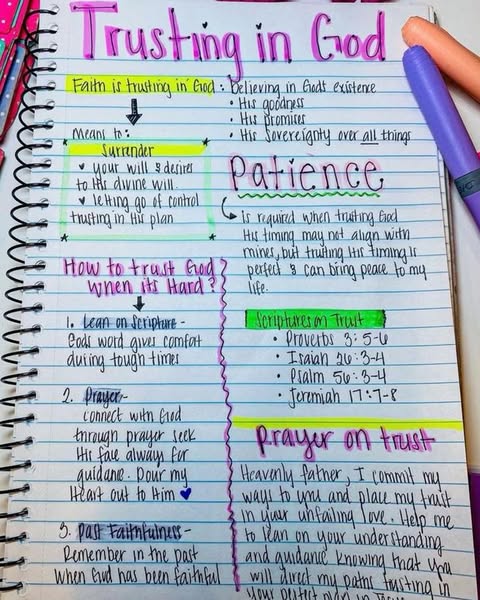 Trusting in God
Faith is trusting in God: believing in God's existence
• His goodness
• His promises
• His sovereignty over all things
Means to:
Surrender
♥ your will & desires
to His divine will.
♥ letting go of control
trusting in His plan
Patience
is required when trusting God
His timing may not align with
mines, but trusting His timing is
perfect & can bring peace to my
life.
How to trust God
when its Hard?
1. Lean on Scripture -
Gods word gives comfort
during tough times
2. Prayer -
connect with God
through prayer seek
His face always for
guidance. Pour my
Heart out to Him 💙
3. Past Faithfulness -
Remember in the past
when God has been faithful
Scriptures on Trust
• Proverbs 3:5-6
• Isaiah 26:3-4
• Psalm 56:3-4
• Jeremiah 17:7-8
Prayer on trust
Heavenly father, I commit my
ways to you and place my trust
in your unfailing love. Help me
to lean on your understanding
and guidance knowing that you
will direct my paths trusting in
your perfect plan in